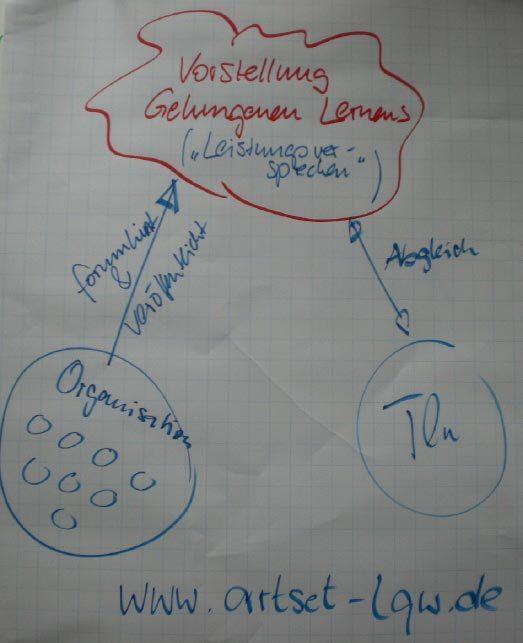 Vorstellung
Gelungenen Lernens
(„Leistungsver-
sprechen“)
formuliert
&
veröffentlicht
Abgleich
Organisation
TLn
www.artset-lqw.de